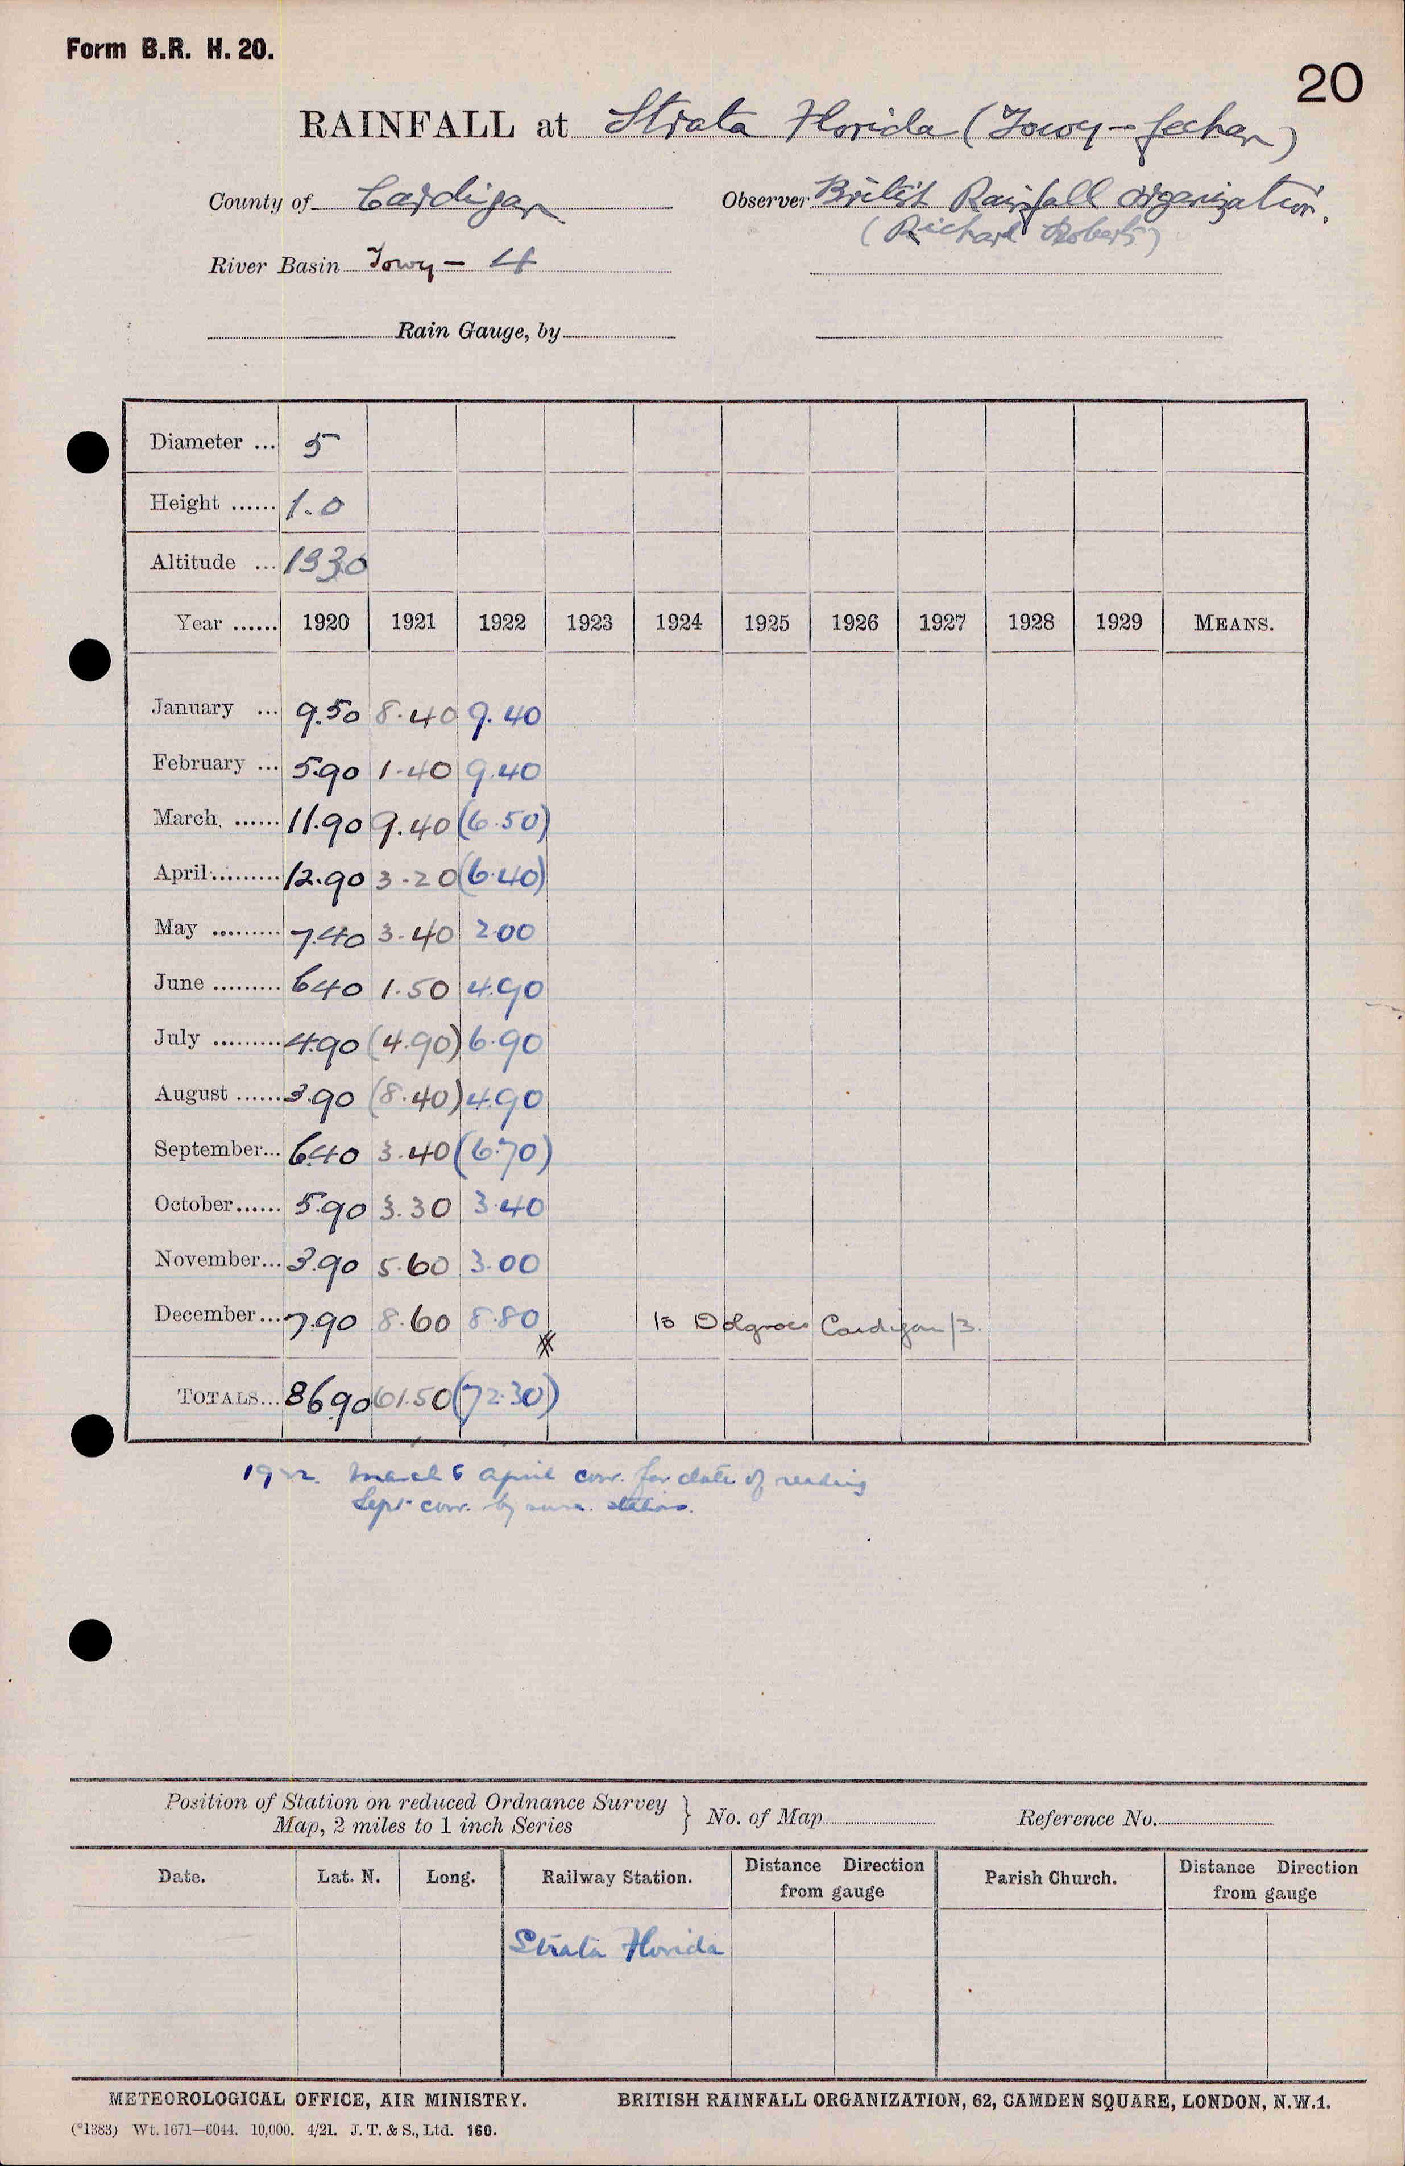 Form B.R. H. 20.
20
RAINFALL at Strata Florida (Towy-fechan)
County of Cardigan Observer British Rainfall Organization.
(Richard Roberts)
River Basin Towy - 4
Rain Gauge, by
Diameter ... 5
Height ...... 1.0
Altitude ... 1330
Year ...... 1920 1921 1922 1923 1924 1925 1926 1927 1928 1929 MEANS.
January ... 9.50 8.40 9.40
February ... 5.90 1.40 9.40
March ...... 11.90 9.40 (6.50)
April ......... 12.90 3.20 (6.40)
May ......... 7.40 3.40 2.00
June ......... 6.40 1.50 4.90
July ......... 4.90 (4.90) 6.90
August ...... 3.90 (8.40) 4.90
September... 6.40 3.40 (6.70)
October...... 5.90 3.30 3.40
November... 3.90 5.60 3.00
December... 7.90 8.60 8.80 Cardigan /3.
TOTALS... 86.90 61.50 (72.30)
1922. March & April corr. for date of reading
Sept corr. by surr. stations.
Position of Station on reduced Ordnance Survey
Map, 2 miles to 1 inch Series } No. of Map Reference No.
Date. Lat. N. Long. Railway Station. Distance Direction from gauge Parish Church. Distance Direction from gauge
Strata Florida
METEOROLOGICAL OFFICE, AIR MINISTRY. BRITISH RAINFALL ORGANIZATION, 62, CAMDEN SQUARE, LONDON, N.W.1.
(*1383) Wt. 1671—6044. 10,000. 4/21. J. T. & S., Ltd. 160.